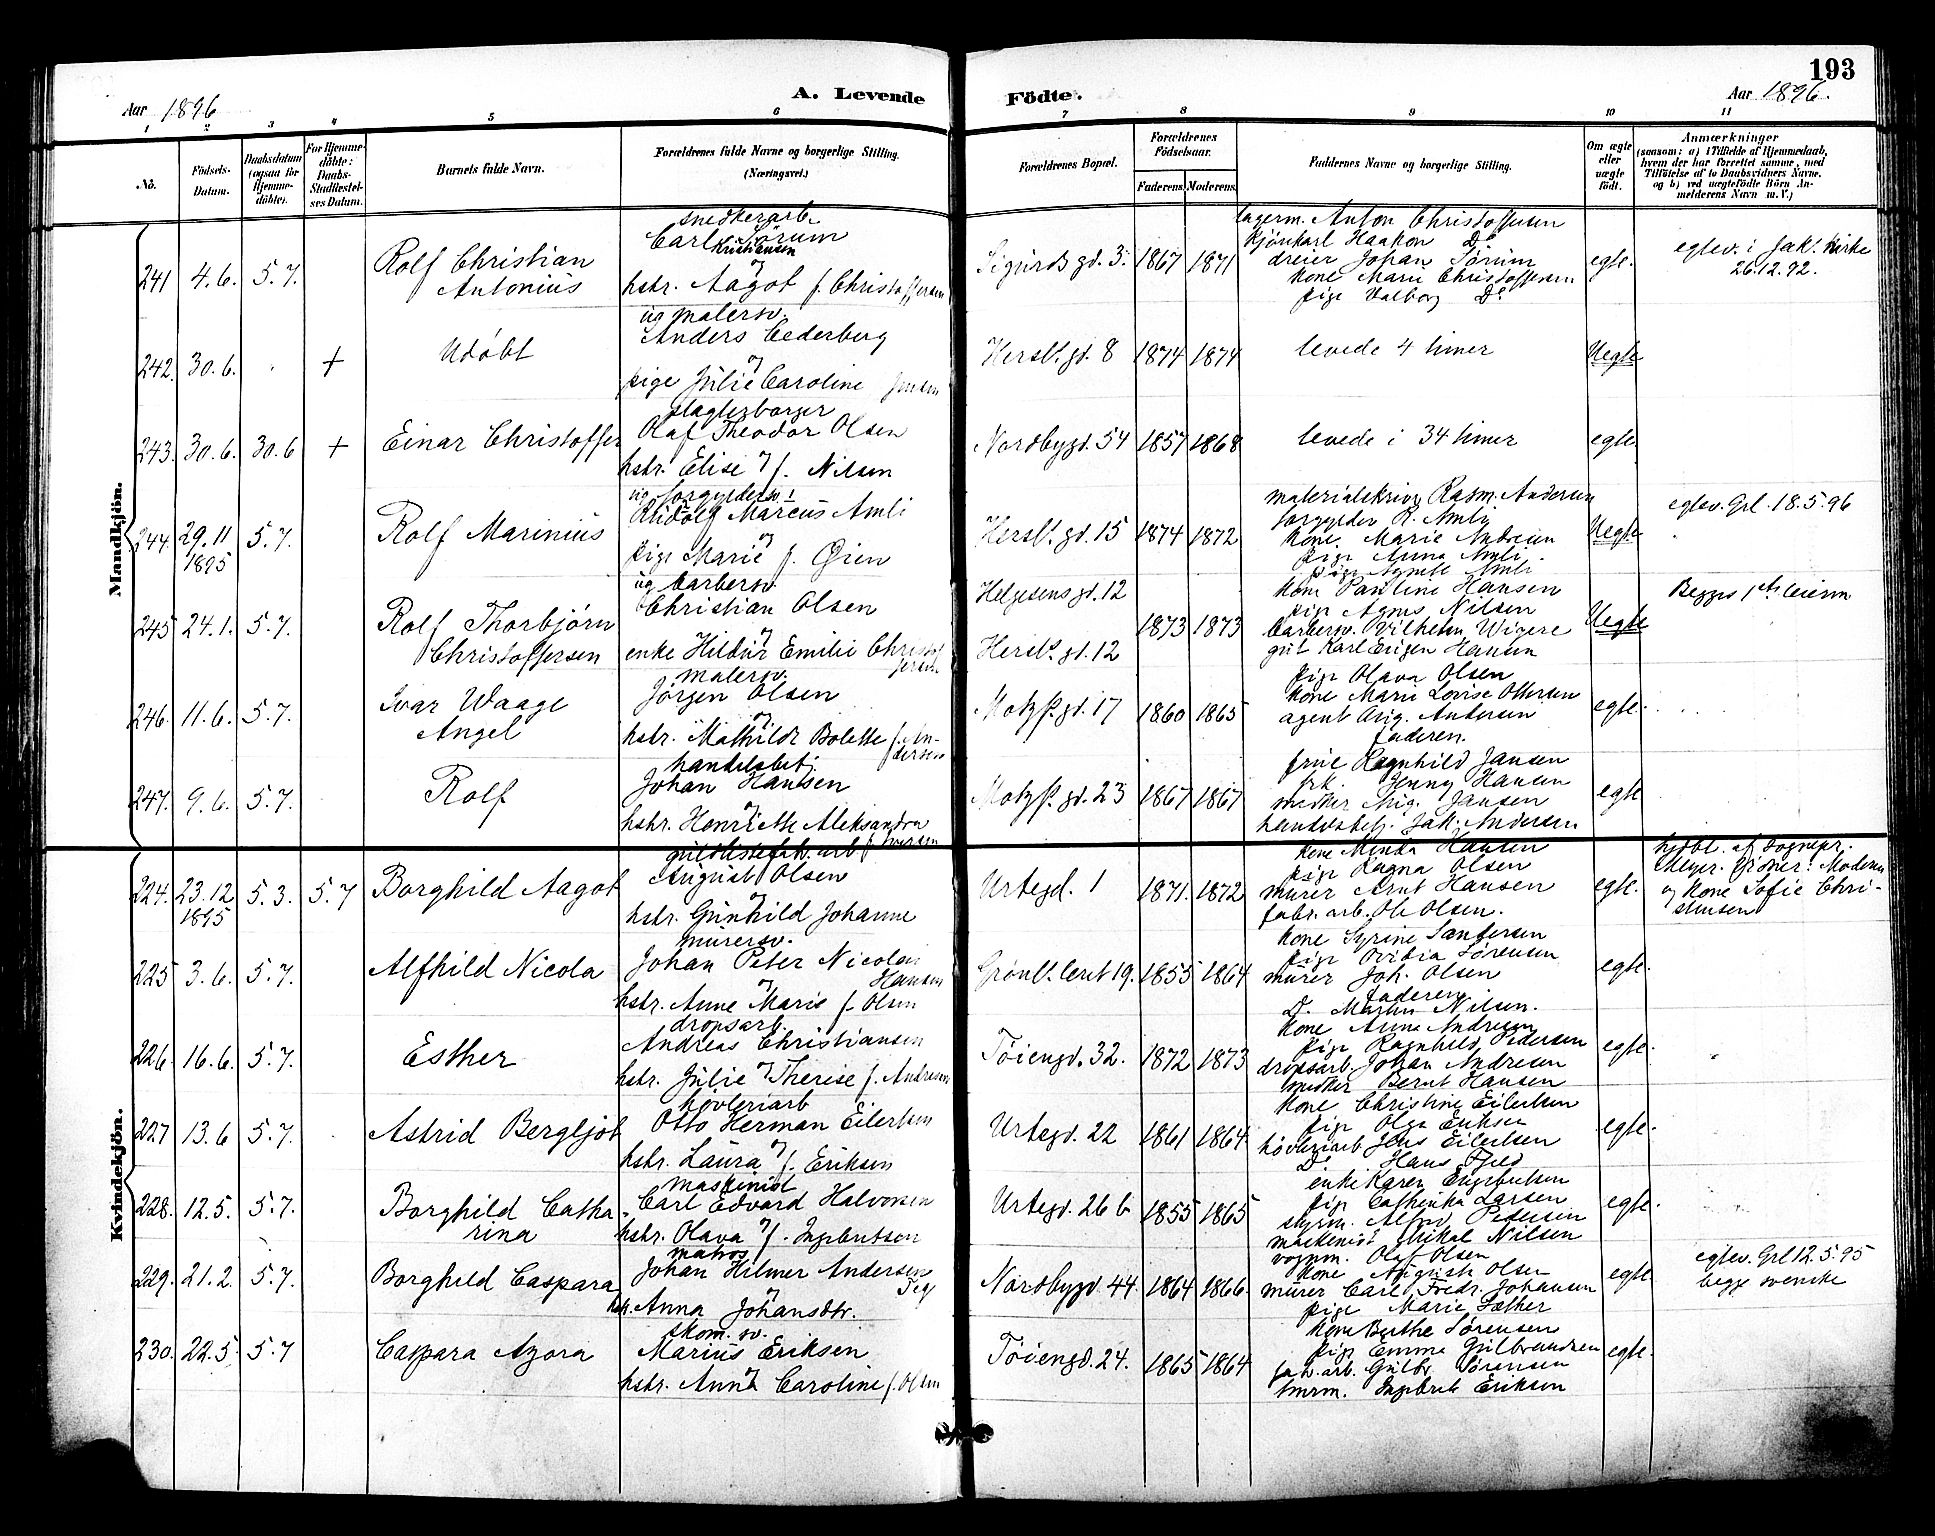 193
Aar 1896
A. Levende
Födte.
Aar 1896.
1 2 3 4 5 6 7 8 9 10 11
No.
Födsels-Datum.
Daabsdatum (ogsaa for Hjemme-döbte).
For Hjemme-döbte: Daabs-Stadfæstel-ses Datum.
Barnets fulde Navn.
Forældrenes fulde Navne og borgerlige Stilling.
(Næringsvei.)
Forældrenes Bopæl.
Forældrenes Födselsaar.
Faderens. Moderens.
Faddernes Navne og borgerlige Stilling.
Om ægte eller uægte födt.
Anmærkninger
(saasom: a) i Tilfælde af Hjemmedaab,
hvem der har forrettet samme, med
Tilföielse af to Daabsvidners Navne,
og b) ved uægtefödte Börn An-
melderens Navn m. V.)
Mandkjön.
241 4.6. 5.7.
Rolf Christian
Antonius
snedkerarb.
Carl Sörum
Kristiansen
og
hstr. Aagot f. Christoffersen
Sigurds gd. 3. 1867 1871
lagerm. Anton Christoffersen
kjörekarl Haakon Do
dreier Johan Sörum
kone Marie Christoffersen
pige Valborg Do
egte.
egtev. i Jak. Kirke
26.12.92.
242. 30.6. +
Udöbt
ug malersv.
Anders Cederberg
og
pige Julie Caroline Jensen
Hersl. gd. 8 1874 1874
levede 4 timer
Uegte
243. 30.6. 30.6 +
Einar Christoffer
slagterborger
Olaf Theodor Olsen
hstr. Elise og f. Nilsen
Nordbygd. 54 1857 1868
levede i 34 timer
egte
244. 29.11 1895 5.7.
Rolf Marinius
ug forgyldersv.
Rudolf Marcus Amli
og
pige Marie f. Øien
Hersl. gd. 15 1874 1872
materialskriv. Rasm. Andersen
forgylder R. Amli
kone Marie Andersen
pige Anna Amli
pige Agnete Amli
Uegte
egtev. Grl. 18.5.96
245 24.1. 5.7.
Rolf Thorbjörn
Christoffersen
ug barbersv.
Christian Olsen
og
enke Hildur Emilie Christoffersen
Helgesens gd. 12
Hersl. gd. 12
1873 1873
kone Pauline Hansen
pige Agnes Nilsen
barbersv. Vilhelm Wigere
gut Karl Erigen Hansen
Uegte
Begges 1ste leierm
246. 11.6. 5.7.
Ivar Waage
Angel
malersv.
Jörgen Olsen
og
hstr. Mathilde Bolette f. Andersen
Motzf. gd. 17 1860 1865
pige Olava Olsen
kone Marie Lovise Ottersen
agent Aug. Andersen
faderen.
egte.
247. 9.6. 5.7.
Rolf
handelsbetj.
Johan Hansen
og
hstr. Henriette Aleksandra f. Iversen
Motzf. gd. 23 1867 1867
frue Ragnhild Jansen
frk. Jenny Hansen
snedker Aug. Jansen
handelsbetj. Jak. Andersen
egte
Kvindekjön.
224. 23.12 1895 5.3. 5.7
Borghild Aagot
guldlistefab. arb
August Olsen
og
hstr. Gunhild Johanne
Urtegd. 1 1871. 1872
kone Minda Hansen
pige Ragna Olsen
murer Arnt Hansen
fabr. arb. Ole Olsen.
egte.
hjdbt. af Sognepr.
Meyer. Vidner: Moderen
og kone Sofie Chri-
stensen
225 3.6. 5.7.
Alfhild Nicola
murersv.
Johan Peter Nicolai
Hansen
og
hstr. Anne Marie f. Olsen
Grönl. leret 19. 1855 1864
kone Syrine Sandersen
pige Ovidia Sörensen
murer Joh. Olsen
faderen
D. Martin Nilsen.
egte.
226. 16.6. 5.7.
Esther
dropsarb.
Andreas Christiansen
hstr. Julie og Therise f. Andresen
Töiengd. 32. 1872 1873
kone Anna Andresen
pige Ragnhild Pedersen
dropsarb. Johan Andresen
snedker Bernt Hansen
egte.
227 13.6 5.7.
Astrid Bergljot
hövleriarb
Otto Herman Eilertsen
hstr. Laura og f. Eriksen
Urtegd. 22 1861 1864
kone Christine Eilertsen
pige Olga Eriksen
hövleriarb Jens Eilertsen
Do Hans Fjeld
egte.
228. 12.5. 5.7.
Borghild Catha
rina
maskinist
Carl Edvard Halvorsen
hstr. Olava og f. Ingebretsen
Urtegd. 26 b 1855 1865
enke Karen Engebretsen
pige Cathinka Larsen
styrm. Alfred Pedersen
maskinist Mikal Nilsen
egte.
229. 21.2. 5.7.
Borghild Caspara
matros
Johan Hilmer Andersen
og
hstr. Anna Johansdtr.
Nordbygd. 44. 1864 1866.
vognm. Olaf Olsen
kone Augusta Olsen
murer Carl Fredr. Johansen
pige Marie Sæther
egte
egtev. Grl 12.5.95
begge svenske
230. 22.5 5.7
Caspara Azora
skom. sv.
Marius Eriksen
hstr. Anna Caroline f. Olsen
Töiengd. 24. 1865 1864
kone Berthe Sörensen
pige Emma Gulbrandsen
fab. arb. Gulbr. Sörensen
tmrm. Ingebret Eriksen
egte.